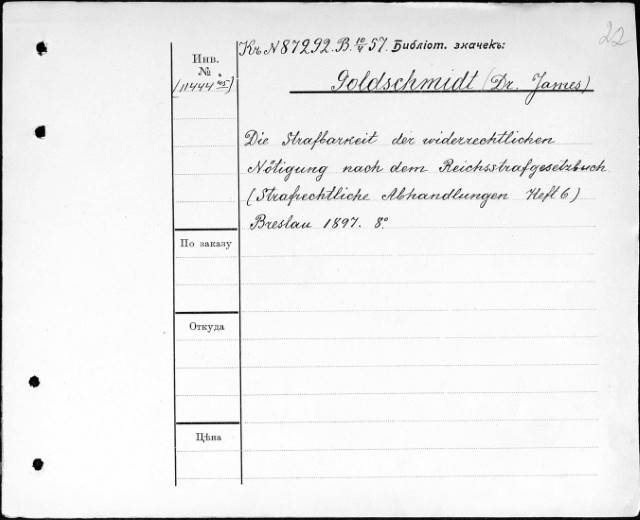 22
Къ N 87292. B. 10/V 57. Библіот. значекъ:
Инв.
№
(11444 45)
Goldschmidt (Dr. James)
Die Strafbarkeit der widerrechtlichen
Nötigung nach dem Reichsstrafgesetzbuch
(Strafrechtliche Abhandlungen Heft 6)
Breslau 1897. 8°
По заказу
Откуда
Цѣна